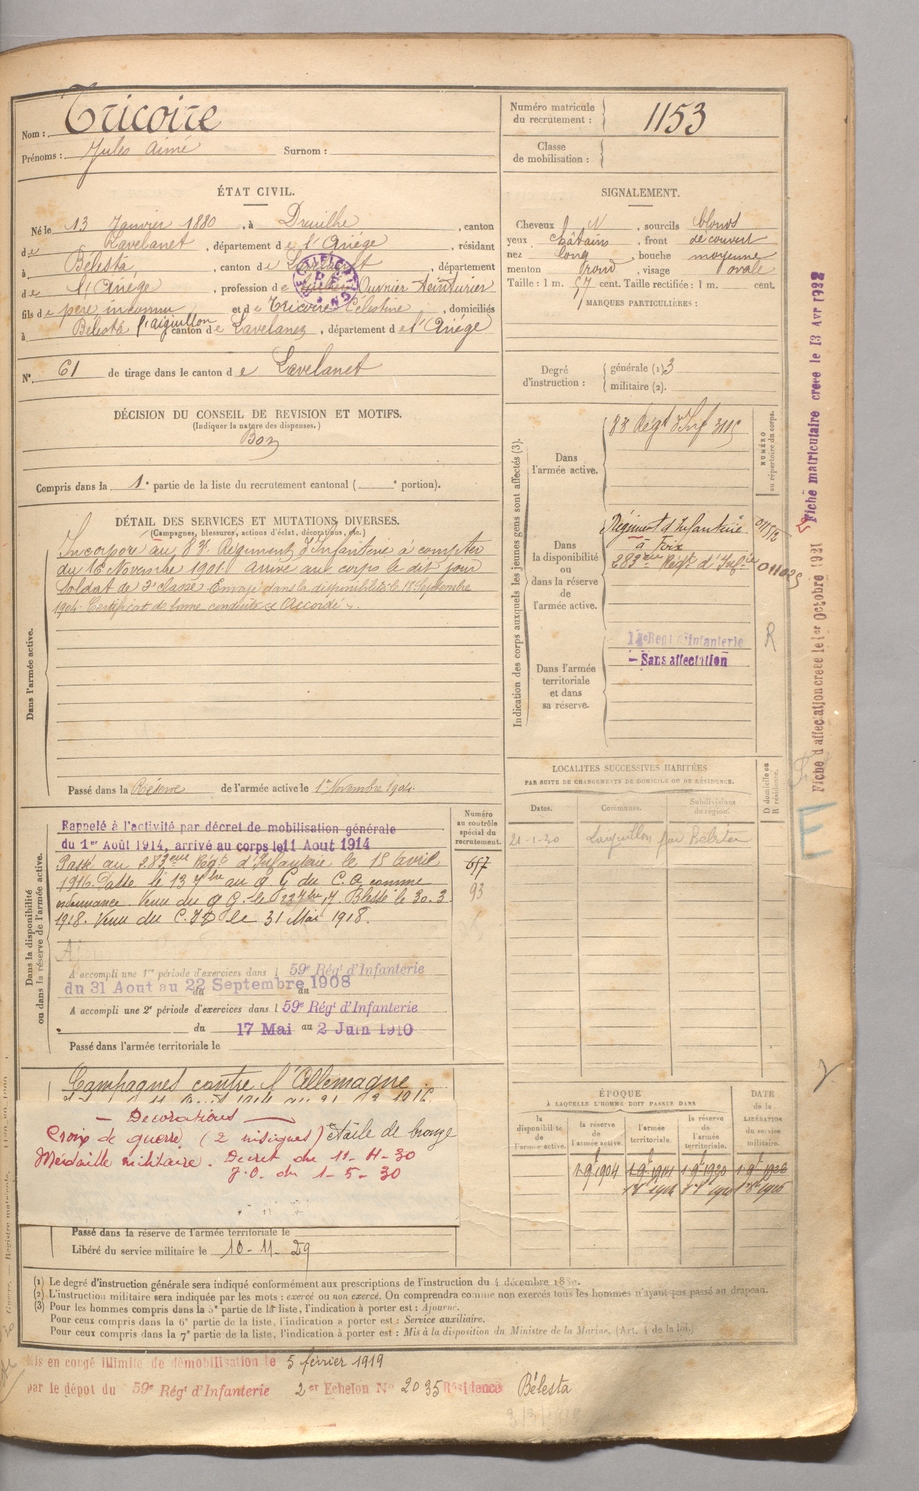 Nom : Tricoire
Prénoms : Jules Aimé Surnom :
ÉTAT CIVIL.
Né le 13 Janvier 1880, à Dreuilhe, canton
de Lavelanet, département de l'Ariège, résidant
à Bélesta, canton de Lavelanet, département
de l'Ariège, profession de Ouvrier teinturier
fils de père inconnu et de Tricoire Célestine, domiciliés
à Bélesta l'aiguillon canton de Lavelanet, département de l'Ariège
N° 61 de tirage dans le canton de Lavelanet
DÉCISION DU CONSEIL DE REVISION ET MOTIFS.
(Indiquer la nature des dispenses.)
Bon
Compris dans la 1e partie de la liste du recrutement cantonal ( e portion).
DÉTAIL DES SERVICES ET MUTATIONS DIVERSES.
(Campagnes, blessures, actions d'éclat, décorations, etc.)
Dans l'armée active.
Incorporé au 83e Régiment d'Infanterie à compter
du 16 Novembre 1901 arrivé au corps le dit jour
Soldat de 2e classe Envoyé dans la disponibilité le 18 Septembre
1904 Certificat de bonne conduite "Accordé".
Passé dans la Réserve de l'armée active le 1er Novembre 1904
Dans la disponibilité
ou dans la réserve de l'armée active.
Numéro
au contrôle
spécial du
recrutement.
657
93
Rappelé à l'activité par décret de mobilisation générale
du 1er Août 1914, arrivé au corps le 11 Aout 1914
Passé au 283ème Régt d'Infanterie le 18 avril
1916. Passé le 13 7bre au Q G du C. A comme
ordonnance. Venu du Q G. le Blessé le 30.3
1918. Venu du C. I D le 31 Mai 1918.
A accompli une 1re période d'exercices dans l 59e Régt d'Infanterie
du 31 Aout au 22 Septembre 1908
A accompli une 2e période d'exercices dans l 59e Régt d'Infanterie
du 17 Mai au 2 Juin 1910
Passé dans l'armée territoriale le
Campagnes contre l'Allemagne
— Décorations —
Croix de guerre (2 insignes) étoile de bronze
Médaille militaire. Décret du
J.O. du 1-5-30
Passé dans la réserve de l'armée territoriale le
Libéré du service militaire le 10-11-29
Numéro matricule
du recrutement : 1153
Classe
de mobilisation :
SIGNALEMENT.
Cheveux, sourcils blonds
yeux châtains, front découvert
nez long, bouche moyenne
menton rond, visage ovale
Taille : 1 m. 57 cent. Taille rectifiée : 1 m. cent.
MARQUES PARTICULIÈRES :
Degré
d'instruction :
générale (1) 3
militaire (2).
Indication des corps auxquels les jeunes gens sont affectés (3).
NUMÉRO
au répertoire du corps.
Dans
l'armée active.
83 Régt d'Inf
Dans
la disponibilité
ou
dans la réserve
de
l'armée active.
Régiment d'Infanterie
à Foix
283ème Régt d'Infie
Dans l'armée
territoriale
et dans
sa réserve.
Regt d'Infanterie
- Sans affectation
R
LOCALITES SUCCESSIVES HABITÉES
PAR SUITE DE CHANGEMENTS DE DOMICILE OU DE RÉSIDENCE.
Dates. Commune. Subdivisions
de région. D domicile ou
R résidence.
21-1-20 par Bélesta
ÉPOQUE
À LAQUELLE L'HOMME DOIT PASSER DANS
la
disponibilité
de
l'armée active.
la réserve
de
l'armée active.
l'armée
territoriale.
la réserve
de
l'armée
territoriale.
DATE
de la
LIBÉRATION
du service
militaire.
Fiche matriculaire creee le 13 Avr 1922
Fiche d'affectation creee le 1er Octobre 1921
E
(1) Le degré d'instruction générale sera indiqué conformément aux prescriptions de l'instruction du 4 décembre
(2) L'instruction militaire sera indiquée par les mots : exercé ou non exercé. On comprendra comme non exercés tous les hommes n'ayant pas passé au drapeau.
(3) Pour les hommes compris dans la 5e partie de la liste, l'indication à porter est : Ajourné.
Pour ceux compris dans la 6e partie de la liste, l'indication à porter est : Service auxiliaire.
Pour ceux compris dans la 7e partie de la liste, l'indication à porter est : Mis à la disposition du Ministre de la Marine. (Art. 4 de la loi.)
Mis en congé illimité de démobilisation le 5 février 1919
par le dépot du 59e Régt d'Infanterie 2er Echelon N° 2035 Résidence Bélesta